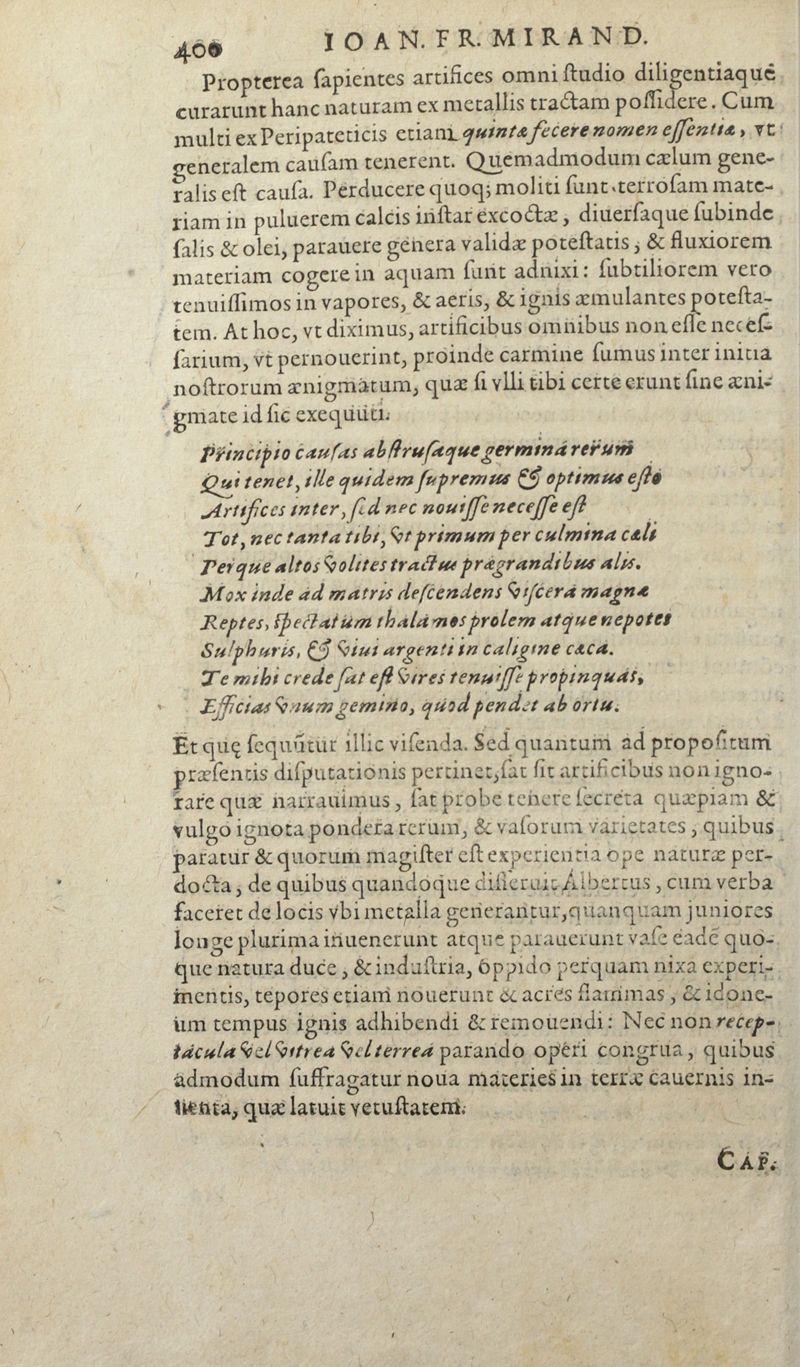 400 IOAN. FR. MIRAND.
Propterea ſapientes artifices omni ſtudio diligentiaque
curarunt hanc naturam ex metallis tractam poſſidere. Cum
multi ex Peripateticis etiam quintæ fecere nomen eſſentiæ, vt
generalem cauſam tenerent. Quemadmodum cælum gene-
ralis eſt cauſa. Perducere quoq; moliti ſunt terroſam mate-
riam in puluerem calcis inſtar excoctæ, diuerſaque ſubinde
ſalis & olei, parauere genera validæ poteſtatis, & fluxiorem
materiam cogere in aquam ſunt adnixi: ſubtiliorem vero
tenuiſſimos in vapores, & aeris, & ignis æmulantes poteſta-
tem. At hoc, vt diximus, artificibus omnibus non eſſe neceſ-
ſarium, vt pernouerint, proinde carmine ſumus inter initia
noſtrorum ænigmatum, quæ ſi vlli tibi certe erunt ſine æni-
gmate id ſic exequuti.
Principio cauſas abſtruſaque germina rerum
Qui tenet, ille quidem ſupremus & optimus eſto
Artifices inter, ſed nec nouiſſe neceſſe eſt
Tot, nec tanta tibi, vt primum per culmina cæli
Perque altos volites tractus prægrandibus alis.
Mox inde ad matris deſcendens viſcera magnæ
Reptes, ſpectatum thalamos prolem atque nepotes
Sulphuris, & viui argenti in caligine cæca.
Te mihi crede ſat eſt vires tenuiſſe propinquas,
Efficias vnum gemino, quod pendet ab ortu.
Et quę ſequūtur illic viſenda. Sed quantum ad propoſitum
præſentis diſputationis pertinet, ſat ſit artificibus non igno-
rare quæ narrauimus, ſat probe tenere ſecreta quæpiam &
vulgo ignota pondera rerum, & vaſorum varietates, quibus
paratur & quorum magiſter eſt experientia ope naturæ per-
docta, de quibus quandoque diſſeruit Albertus, cum verba
faceret de locis vbi metalla generantur, quanquam juniores
longe plurima inuenerunt atque parauerunt vaſe eadē quo-
que natura duce, & induſtria, oppido perquam nixa experi-
mentis, tepores etiam nouerunt & acres flammas, & idone-
um tempus ignis adhibendi & remouendi: Nec non recep-
tacula vel vitrea vel terrea parando operi congrua, quibus
admodum ſuffragatur noua materies in terræ cauernis in-
uenta, quæ latuit vetuſtatem.
CAP.